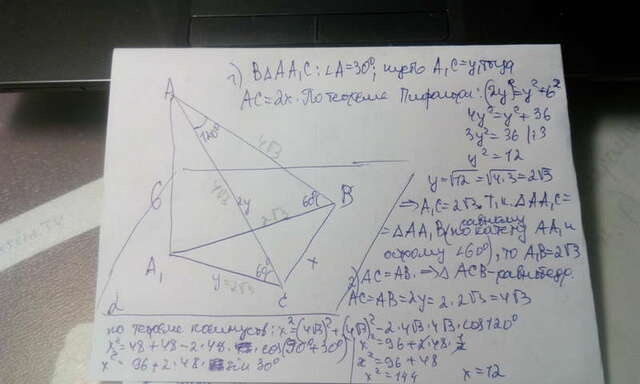 1) В △AA₁C: ∠A=30°; пусть A₁C=y, тогда
AC=2x. По теореме Пифагора: (2y)²=y²+6²
4y²=y²+36
3y²=36 |:3
y²=12
y=√12=√4·3=2√3
⇒ A₁C=2√3. Т.к. △AA₁C=
=△AA₁B (по катету AA₁ и
острому ∠60°), то A₁B=2√3
2) AC=AB. ⇒ △ACB-равнобедр.
AC=AB=2y=2·2√3=4√3
A
120°
4√3
6
4√3
2y
60°
B
2√3
A₁
60°
x
y=2√3
C
α
по теореме косинусов: x²=(4√3)²+(4√3)²-2·4√3·4√3·cos120°
x²=48+48-2·48·cos(90°+30°)
x²=96+2·48·sin30°
x²=96+2·48·½
x²=96+48
x²=144
x=12